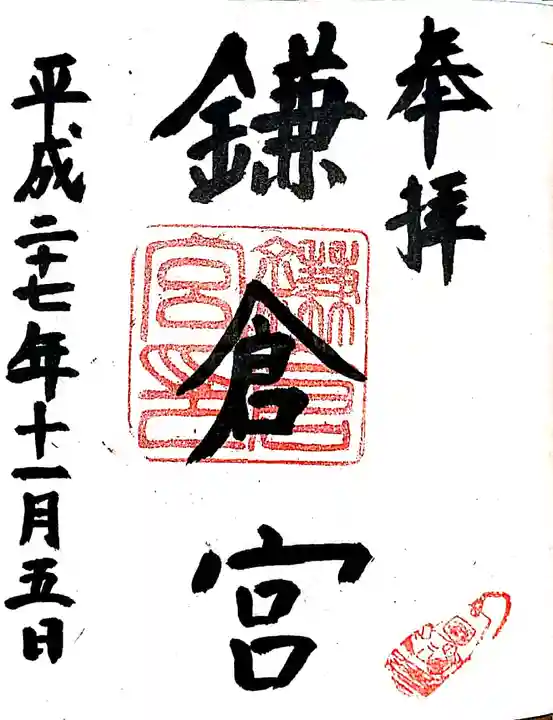 奉拝
鎌倉宮
平成二十七年十一月五日
鎌倉宮印